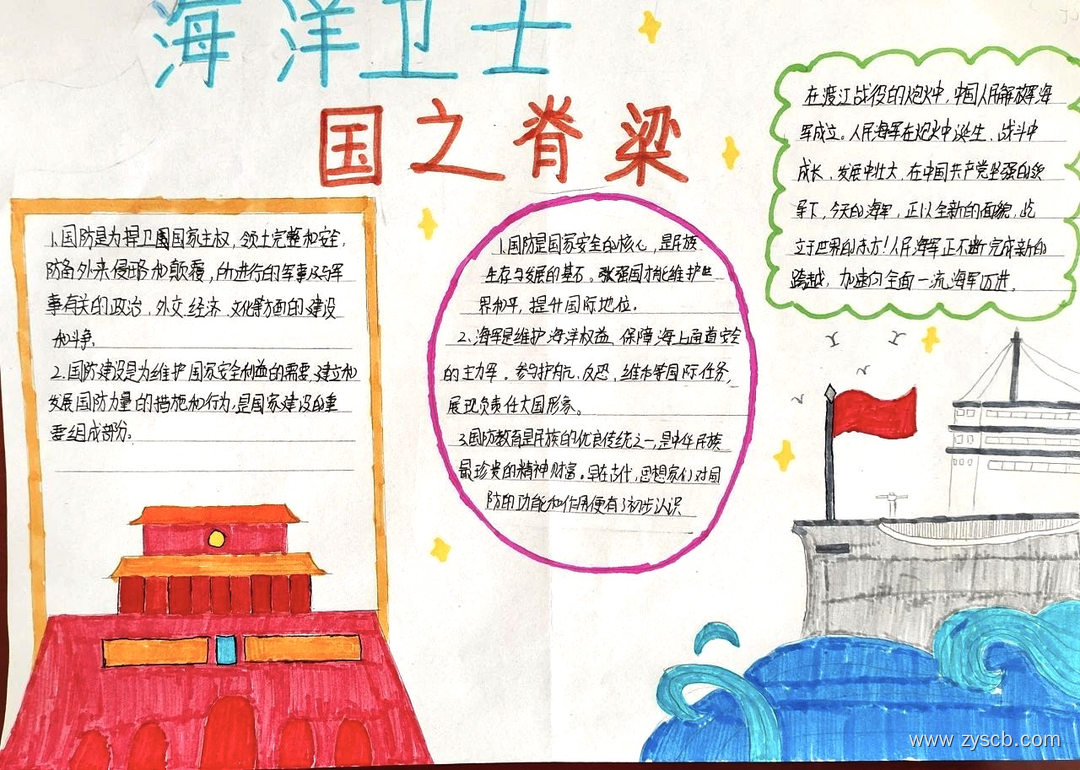 海洋卫士
国之脊梁
1.国防是为捍卫国家主权,领土完整和安全,
防备外来侵略和颠覆,所进行的军事及与军
事有关的政治,外交.经济.文化等方面的建设
和斗争.
2.国防建设是为维护国家安全利益的需要,建立和
发展国防力量的措施和行为,是国家建设的重
要组成部份。
1.国防是国家安全的核心,是民族
生存与发展的基石。张强国才能维护世
界和平,提升国际地位.
2、海军是维护海洋权益,保障海上通道安全
的主力军。参与护航、反恐,维和等国际任务,
展现负责任大国形象。
3.国防教育是民族的优良传统之一,是中华民族
最珍贵的精神财富。早在古代,思想家们对国
防的功能和作用便有了初步认识
在渡江战役的炮火中,中国人民解放军海
军成立。人民海军在炮火中诞生、战斗中
成长、发展中壮大,在中国共产党坚强的领
导下,今天的海军,正以全新的面貌,屹
立于世界的东方!人民海军正不断完成新的
跨越,加速向全面一流海军迈进.
www.zyscb.com